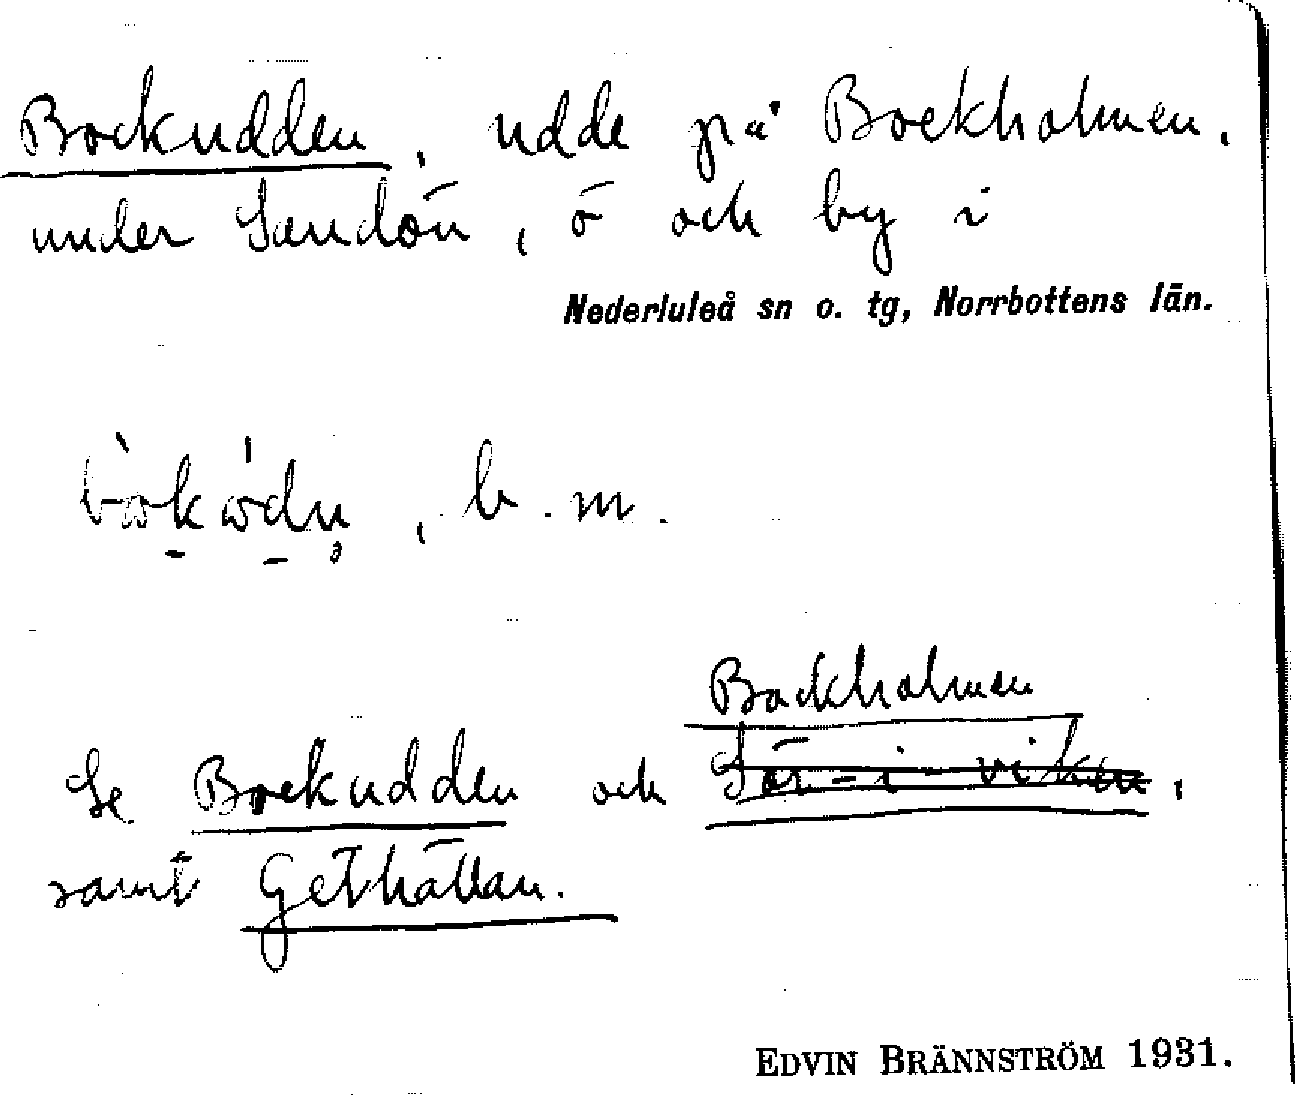 Bockudden, udde på Bockholmen,
under Sandön, ö och by i
Nederluleå sn o. tg, Norrbottens län.
b. m.
Bockholmen
Se Bockudden och Sör-i-viken,
samt Gethällan.
EDVIN BRÄNNSTRÖM 1931.